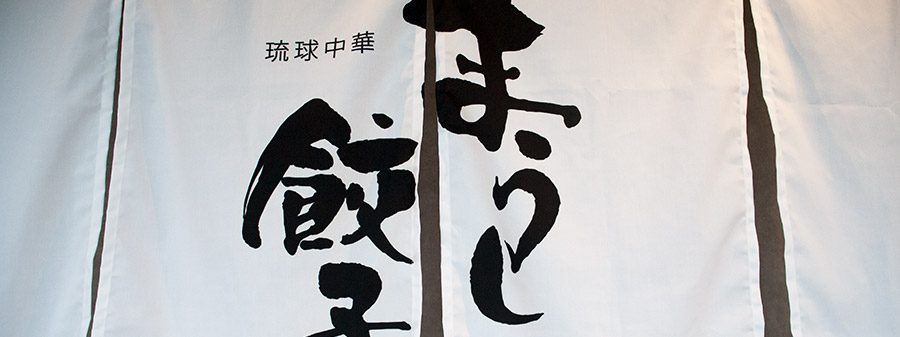 琉球中華
まうし
餃子